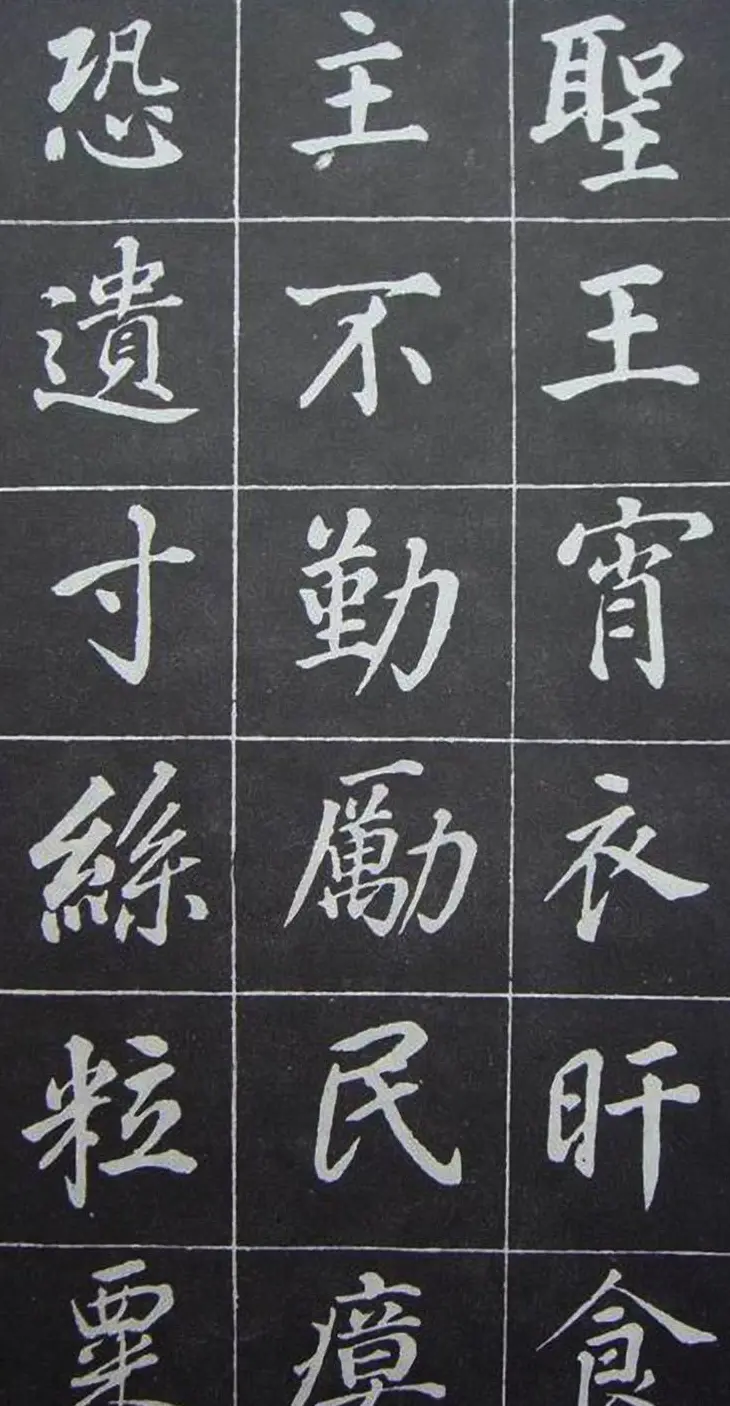 聖王宵衣旰食
主不勤勵民瘴
恐遺寸絲粒粟